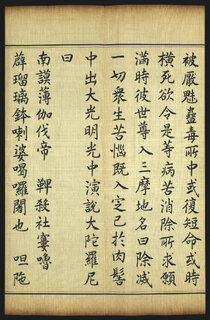 被厭魅蠱毒所中或復短命或時
橫死欲令是等病苦消除所求願
滿時彼世尊入三摩地名曰除滅
一切衆生苦惱既入定已於肉髻
中出大光明光中演說大陀羅尼
曰
南謨薄伽伐帝　鞞殺社窶嚕
薜琉璃鉢喇婆喝囉闍也　呾陁